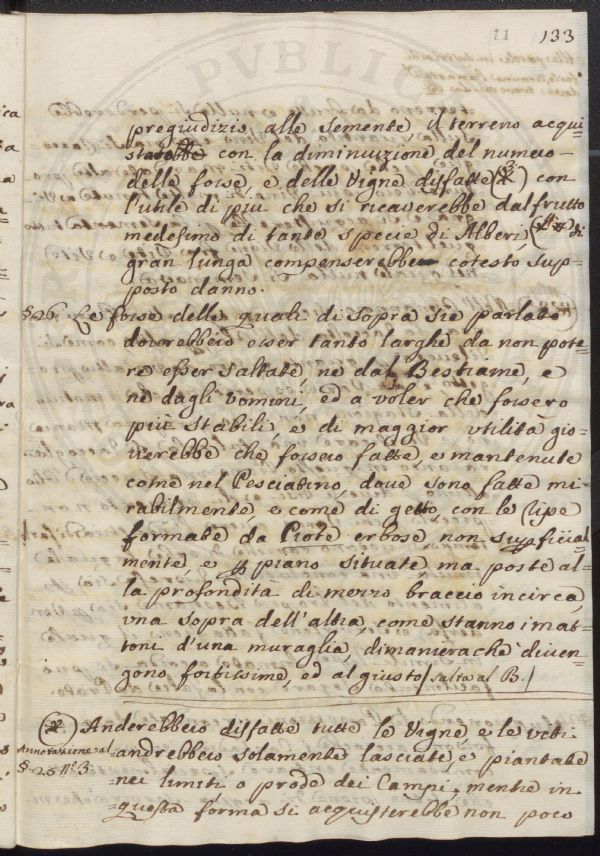 11 133
pregiudizio alle semente, il terreno acqui
starebbe con la diminuzione del numero
delle fosse, e delle Vigne disfatte (*) con
l'utile di più che si ricaverebbe dal frutto
medesimo di tante specie di Alberi, (**) di
gran lunga compenserebbe cotesto sup=
posto danno.
§ 26. Le fosse delle quali di sopra si è parlato
dovrebbero esser tanto larghe da non pote=
re esser saltate, nè dal Bestiame, e
nè dagli uomini, ed a voler che fossero
più stabili, e di maggior utilità gio=
verebbe che fossero fatte, e mantenute
come nel Pesciatino, dove sono fatte mi=
rabilmente, e come di getto, con le ripe
formate da Piote erbose, non superficial=
mente, e per piano situate, ma poste al=
la profondità di mezzo braccio incirca,
una sopra dell'altra, come stanno i mat=
toni d'una muraglia, dimanierachè diven=
gono fortissime, ed al giusto / salta al B. /
(*) Anderebbero disfatte tutte le Vigne, e le viti
Annotazione al
§ 25 N° 3
andrebbero solamente lasciate, e piantate
nei limiti o prode dei Campi, mentre in
questa forma si acquisterebbe non poco